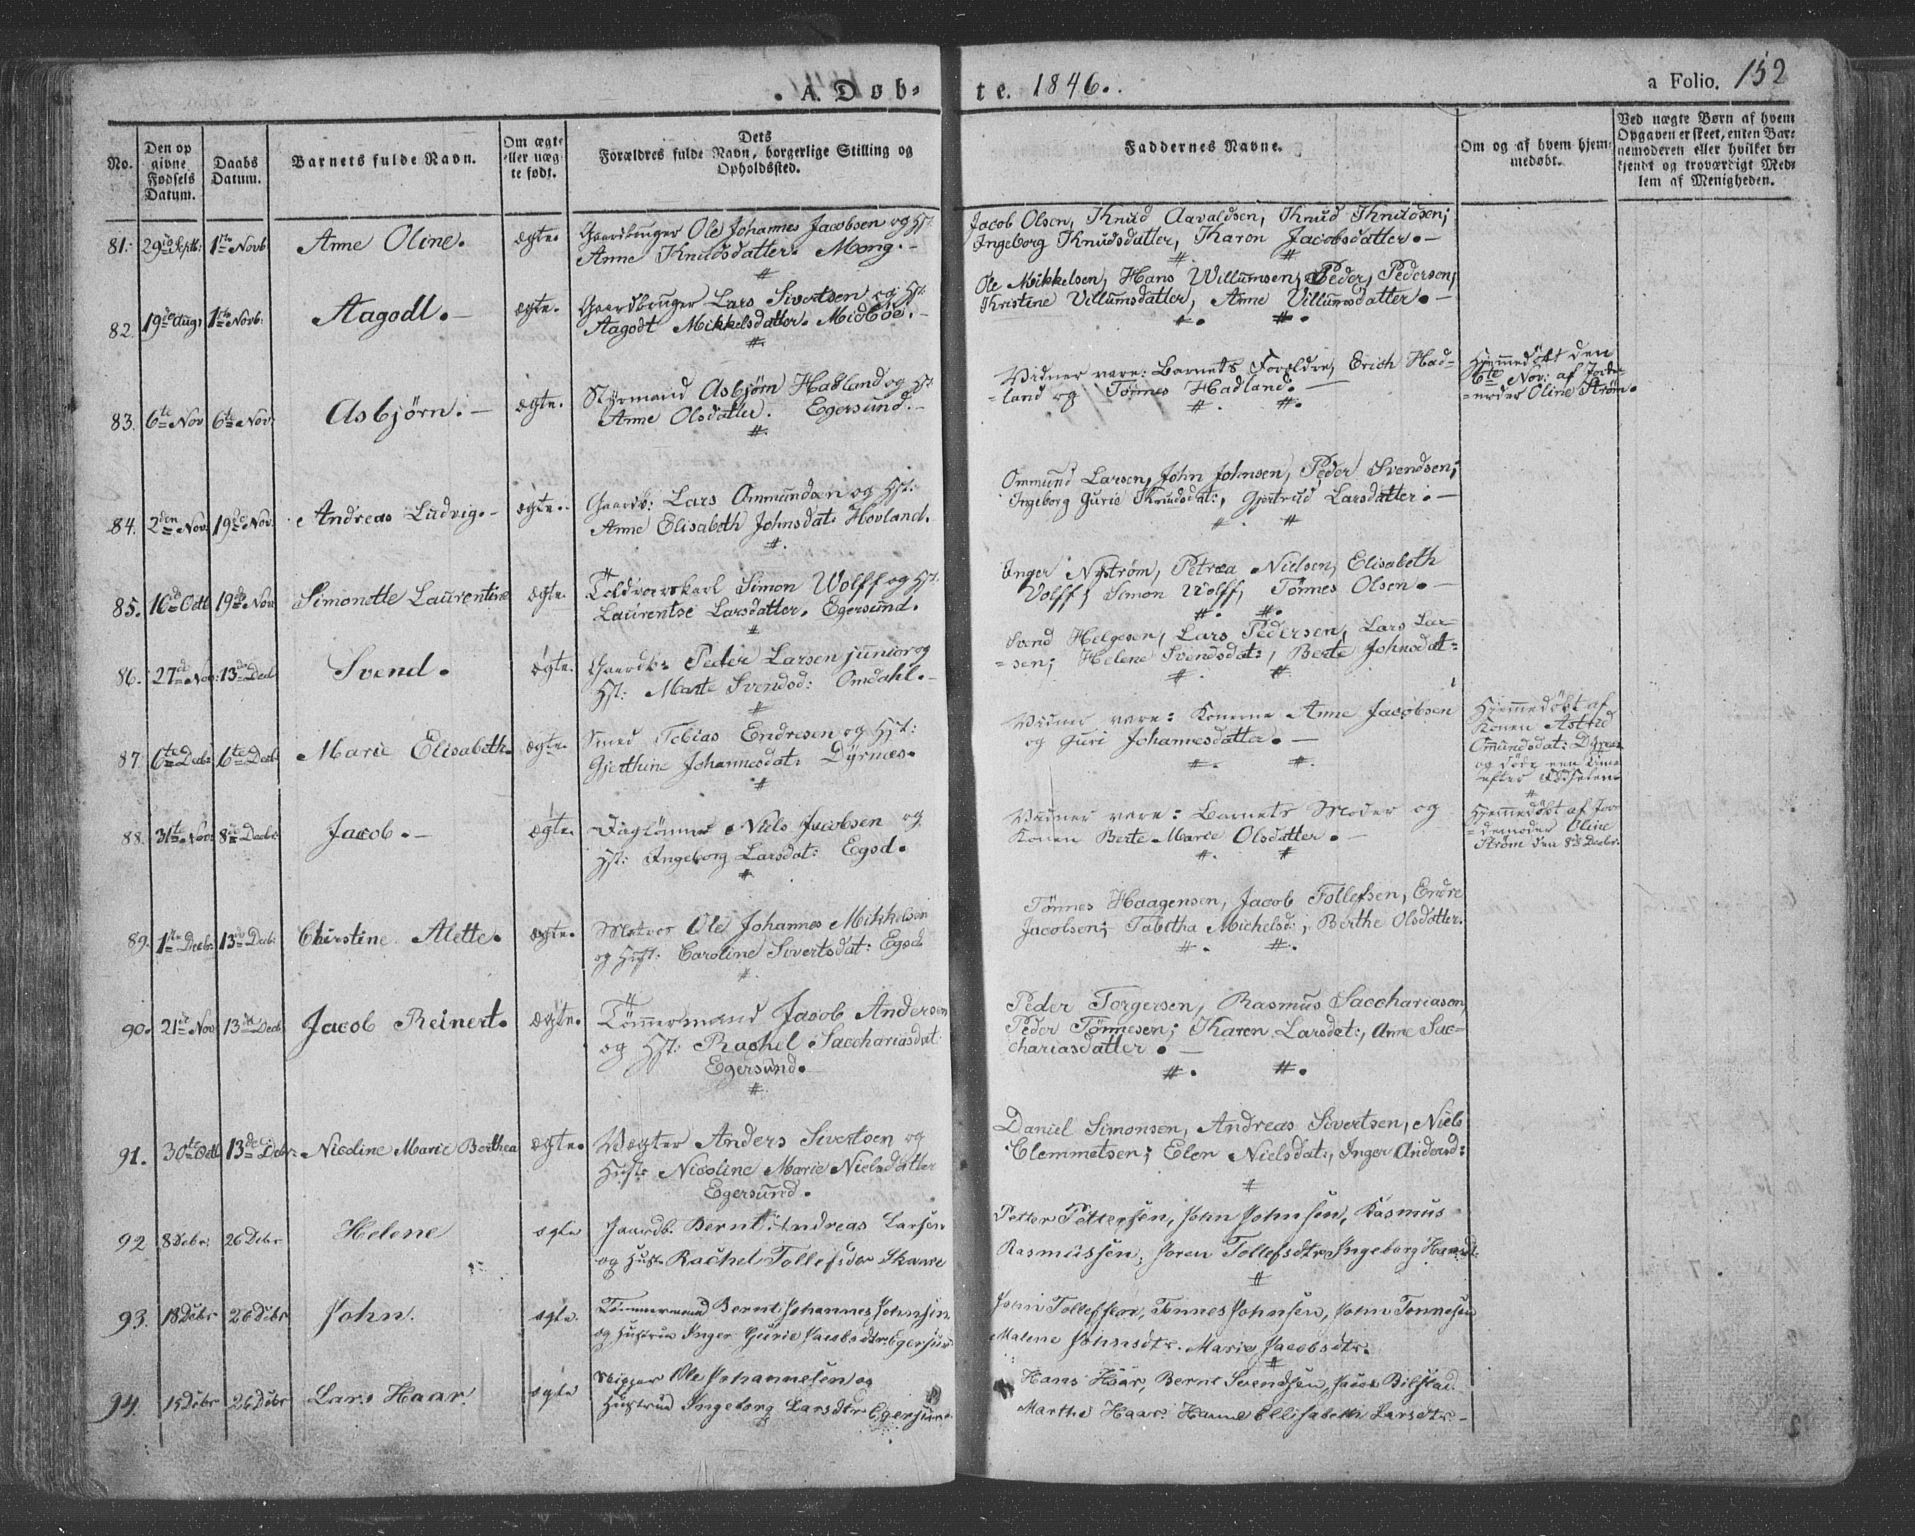 A. Døb- te. 1846.
a Folio. 152
No.
Den op
givne
Fødsels
Datum.
Daabs
Datum.
Barnets fulde Navn.
Om ægte
eller uæg
te født.
Dets
Forældres fulde Navn, borgerlige Stilling og
Opholdssted.
Faddernes Navne.
Om og af hvem hjem-
medøbt.
Ved uægte Børn af hvem
Opgaven er skeet, enten Bar-
nemoderen eller hvilket be-
kjendt og troværdigt Med-
lem af Menigheden.
81. 29de Septb: 1ste Novb Anne Oline. ægte. Gaardbruger Ole Johannes Jacobsen og Hst:
Anne Knudsdatter. Mong.
Jacob Olsen, Knud Aavaldsen, Knud Knudsen;
Ingeborg Knudsdatter, Karen Jacobsdatter.
82 19de Aug: 1ste Novb: Aagodt. ægte. Gaardbruger Lars Sivertsen og Hst:
Aagodt Mikkelsdatter. Midbøe.
Ole Mikkelsen, Hans Willumsen, Peder Pedersen;
Kristine Villumsdatter, Anne Villumsdatter.
83. 6te Nov 6te Nov: Asbjørn. ægte. Styrmand Asbjørn Hadland og Hst:
Anne Olsdatter. Egersund.
Vidner vare: Barnets Forældre, Erich Had-
land og Tønnes Hadland.
Hjemmedøbt den
6te Nov: af Jorde-
moder Oline Strøm.
84. 2den Nov: 19de Nov: Andreas Ludvig. ægte. Gaardb: Lars Ommundsen og Hst:
Anne Elisabeth Johnsdat: Hovland.
Ommund Larsen, John Johnsen, Peder Svendsen;
Ingeborg Gurie Knudsdat:, Gjertrud Larsdatter.
85. 16de Octb 19de Nov Simonette Laurentine ægte. Toldroerskarl Simon Wolff og Hst:
Laurentse Larsdatter. Egersund.
Inger Nystrøm, Petrea Nielsen, Elisabeth
Wolff, Simon Wolff, Tønnes Olsen.
86. 27de Nov: 13de Decb Svend. ægte. Gaardb: Peder Larsen junior og
Hst: Marte Svendsd: Omdahl.
Svend Helgesen, Lars Pedersen, Lars Lar-
sen; Helene Svendsdat:, Berte Johnsdat:
87. 6te Decb: 6te Decb: Marie Elisabeth. ægte. Smed Tobias Endresen og Hst:
Gjerthine Johannesdat: Dyrnes.
Vidner vare: Konerne Anne Jacobsen
og Guri Johannesdatter.
Hjemmedøbt af
Konen Astrid
Omundsdat: Dyrnes
og døde een Time
efter Fødselen
88. 31te Nov: 8de Decbr: Jacob. ægte. Daglønner Niels Jacobsen og
Hst: Ingeborg Larsdat: Egod.
Vidner vare: Barnets Moder og
Konen Berte Marie Olsdatter.
Hjemmedøbt af Jor-
demoder Oline
Strøm den 8de Decbr.
89. 1ste Decb: 13de Decb: Christine Alette. ægte. Matros Ole Johannes Mikkelsen
og Hust: Caroline Sivertsdat: Egod
Tønnes Haagensen, Jacob Tollefsen, Endre
Jacobsen; Tabitha Michelsd:, Berthe Olsdatter.
90. 21de Nov 13de Decb Jacob Reinert. ægte. Tømmermand Jacob Andersen
og Hst: Rachel Sacchariasdat:
Egersund.
Peder Torgersen, Rasmus Sacchariasen,
Peder Tønnesen; Karen Larsdat:, Anne Sac-
chariasdatter.
91. 30te Octb 13de Debr: Nicoline Marie Berthea ægte. Vægter Anders Sivertsen og
Hust: Nicoline Marie Nielsdatter
Egersund.
Daniel Simonsen, Andreas Sivertsen, Niels
Clemmetsen; Elen Nielsdat:, Inger Andersd:
92 8 Debr: 26 Debr Helene ægte Gaardb. Bernt Andreas Larsen
og Hust: Rachel Tollefsdtr Skaare
Petter Pettersen, John Johnsen, Rasmus
Rasmussen; Joren Tollefsdtr. Ingeborg
93. 18 Debr 26 Debr John. ægte. Tømmermand Bernt Johannes Johnsen,
og Hustrue Inger Gurie Jacobsdtr: Egersund
John Tollefsen, Tønnes Johnsen, John Tønnesen
Malene Johnsdtr. Marie Jacobsdtr.
94. 15 Debr 26 Debr Lars Haar. ægte Skipper Ole Johannesen og
Hustrue Ingeborg Larsdtr: Egersund
Hans Haar, Bernt Svendsen, Jacob Bilstad.
Marthe Haar. Hanne Ellisabeth Larsdtr.